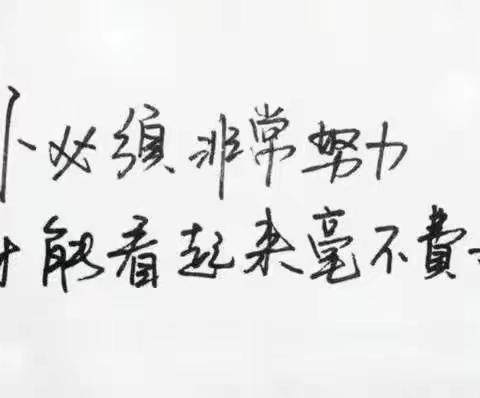 必須非常努力
能看起来毫不費